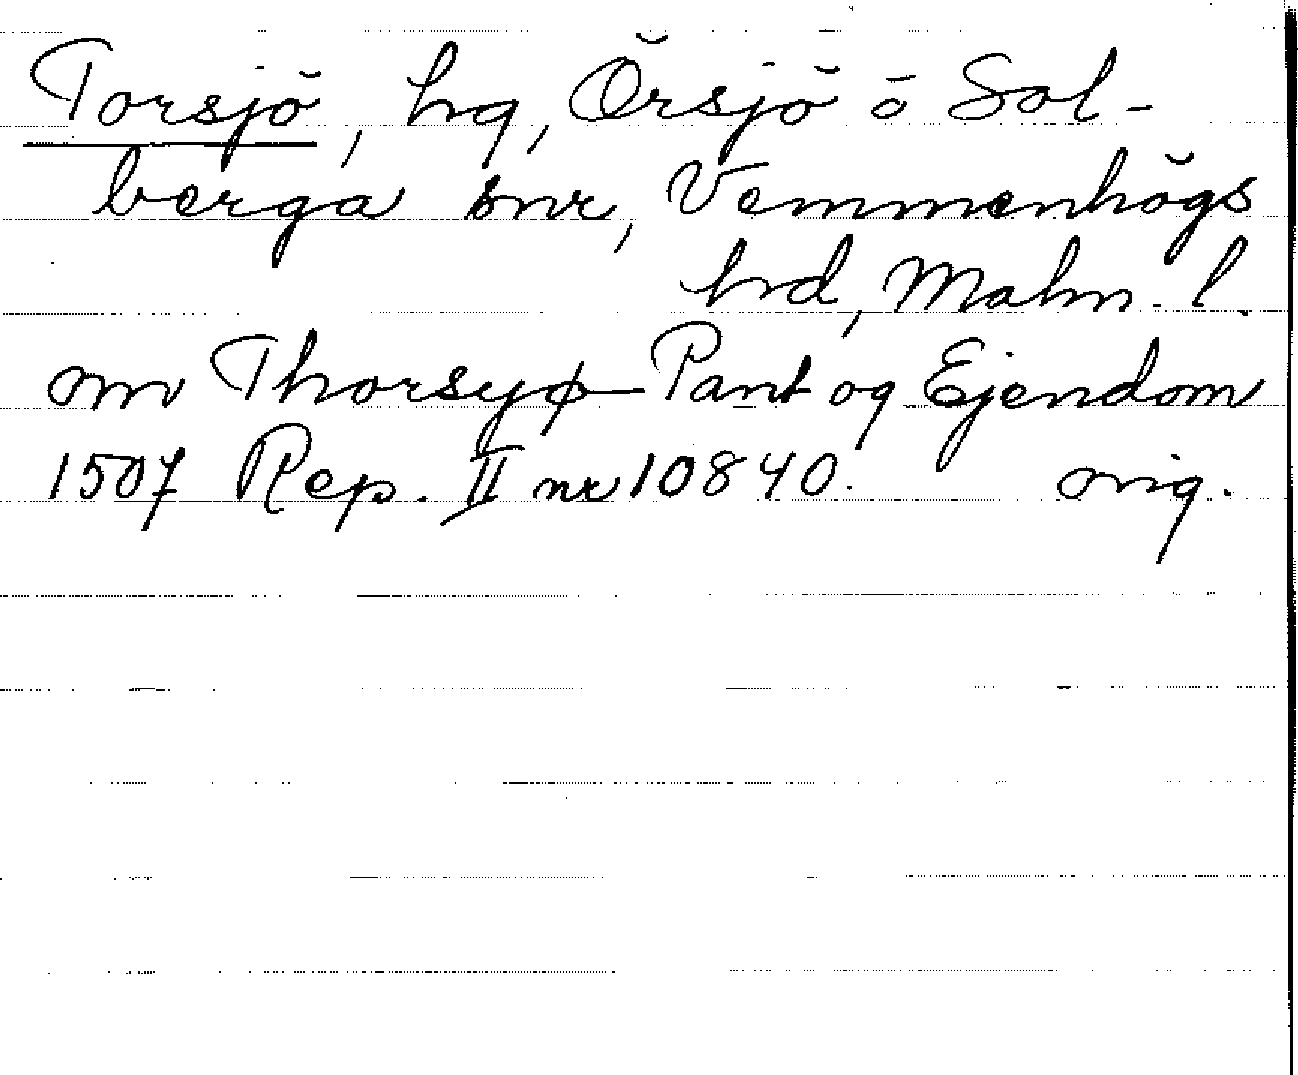 Torsjö, hg, Örsjö o Sol-
berga snr, Vemmenhögs
hrd, Malm. l.
om Thorsyø Pant og Ejendom
1507 Rep. II nr 10840. orig.